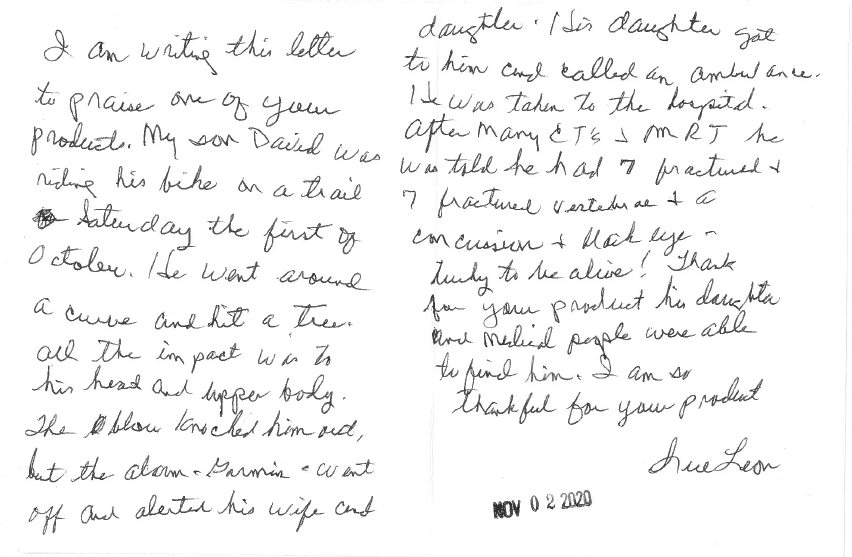 I am writing this letter
to praise one of your
products. My son David was
riding his bike on a trail
Saturday the first of
October. He went around
a curve and hit a tree.
all the impact was to
his head and upper body.
The blow knocked him out,
but the alarm - Garmin - went
off and alerted his wife and
daughter. His daughter got
to him and called an ambulance.
He was taken to the hospital.
After many CT's & MRI he
was told he had 7 fractured &
7 fractured vertebrae & a
concussion & black eye -
lucky to be alive! Thank
for your product his daughter
and medical people were able
to find him. I am so
thankful for your product
Leon
NOV 02 2020